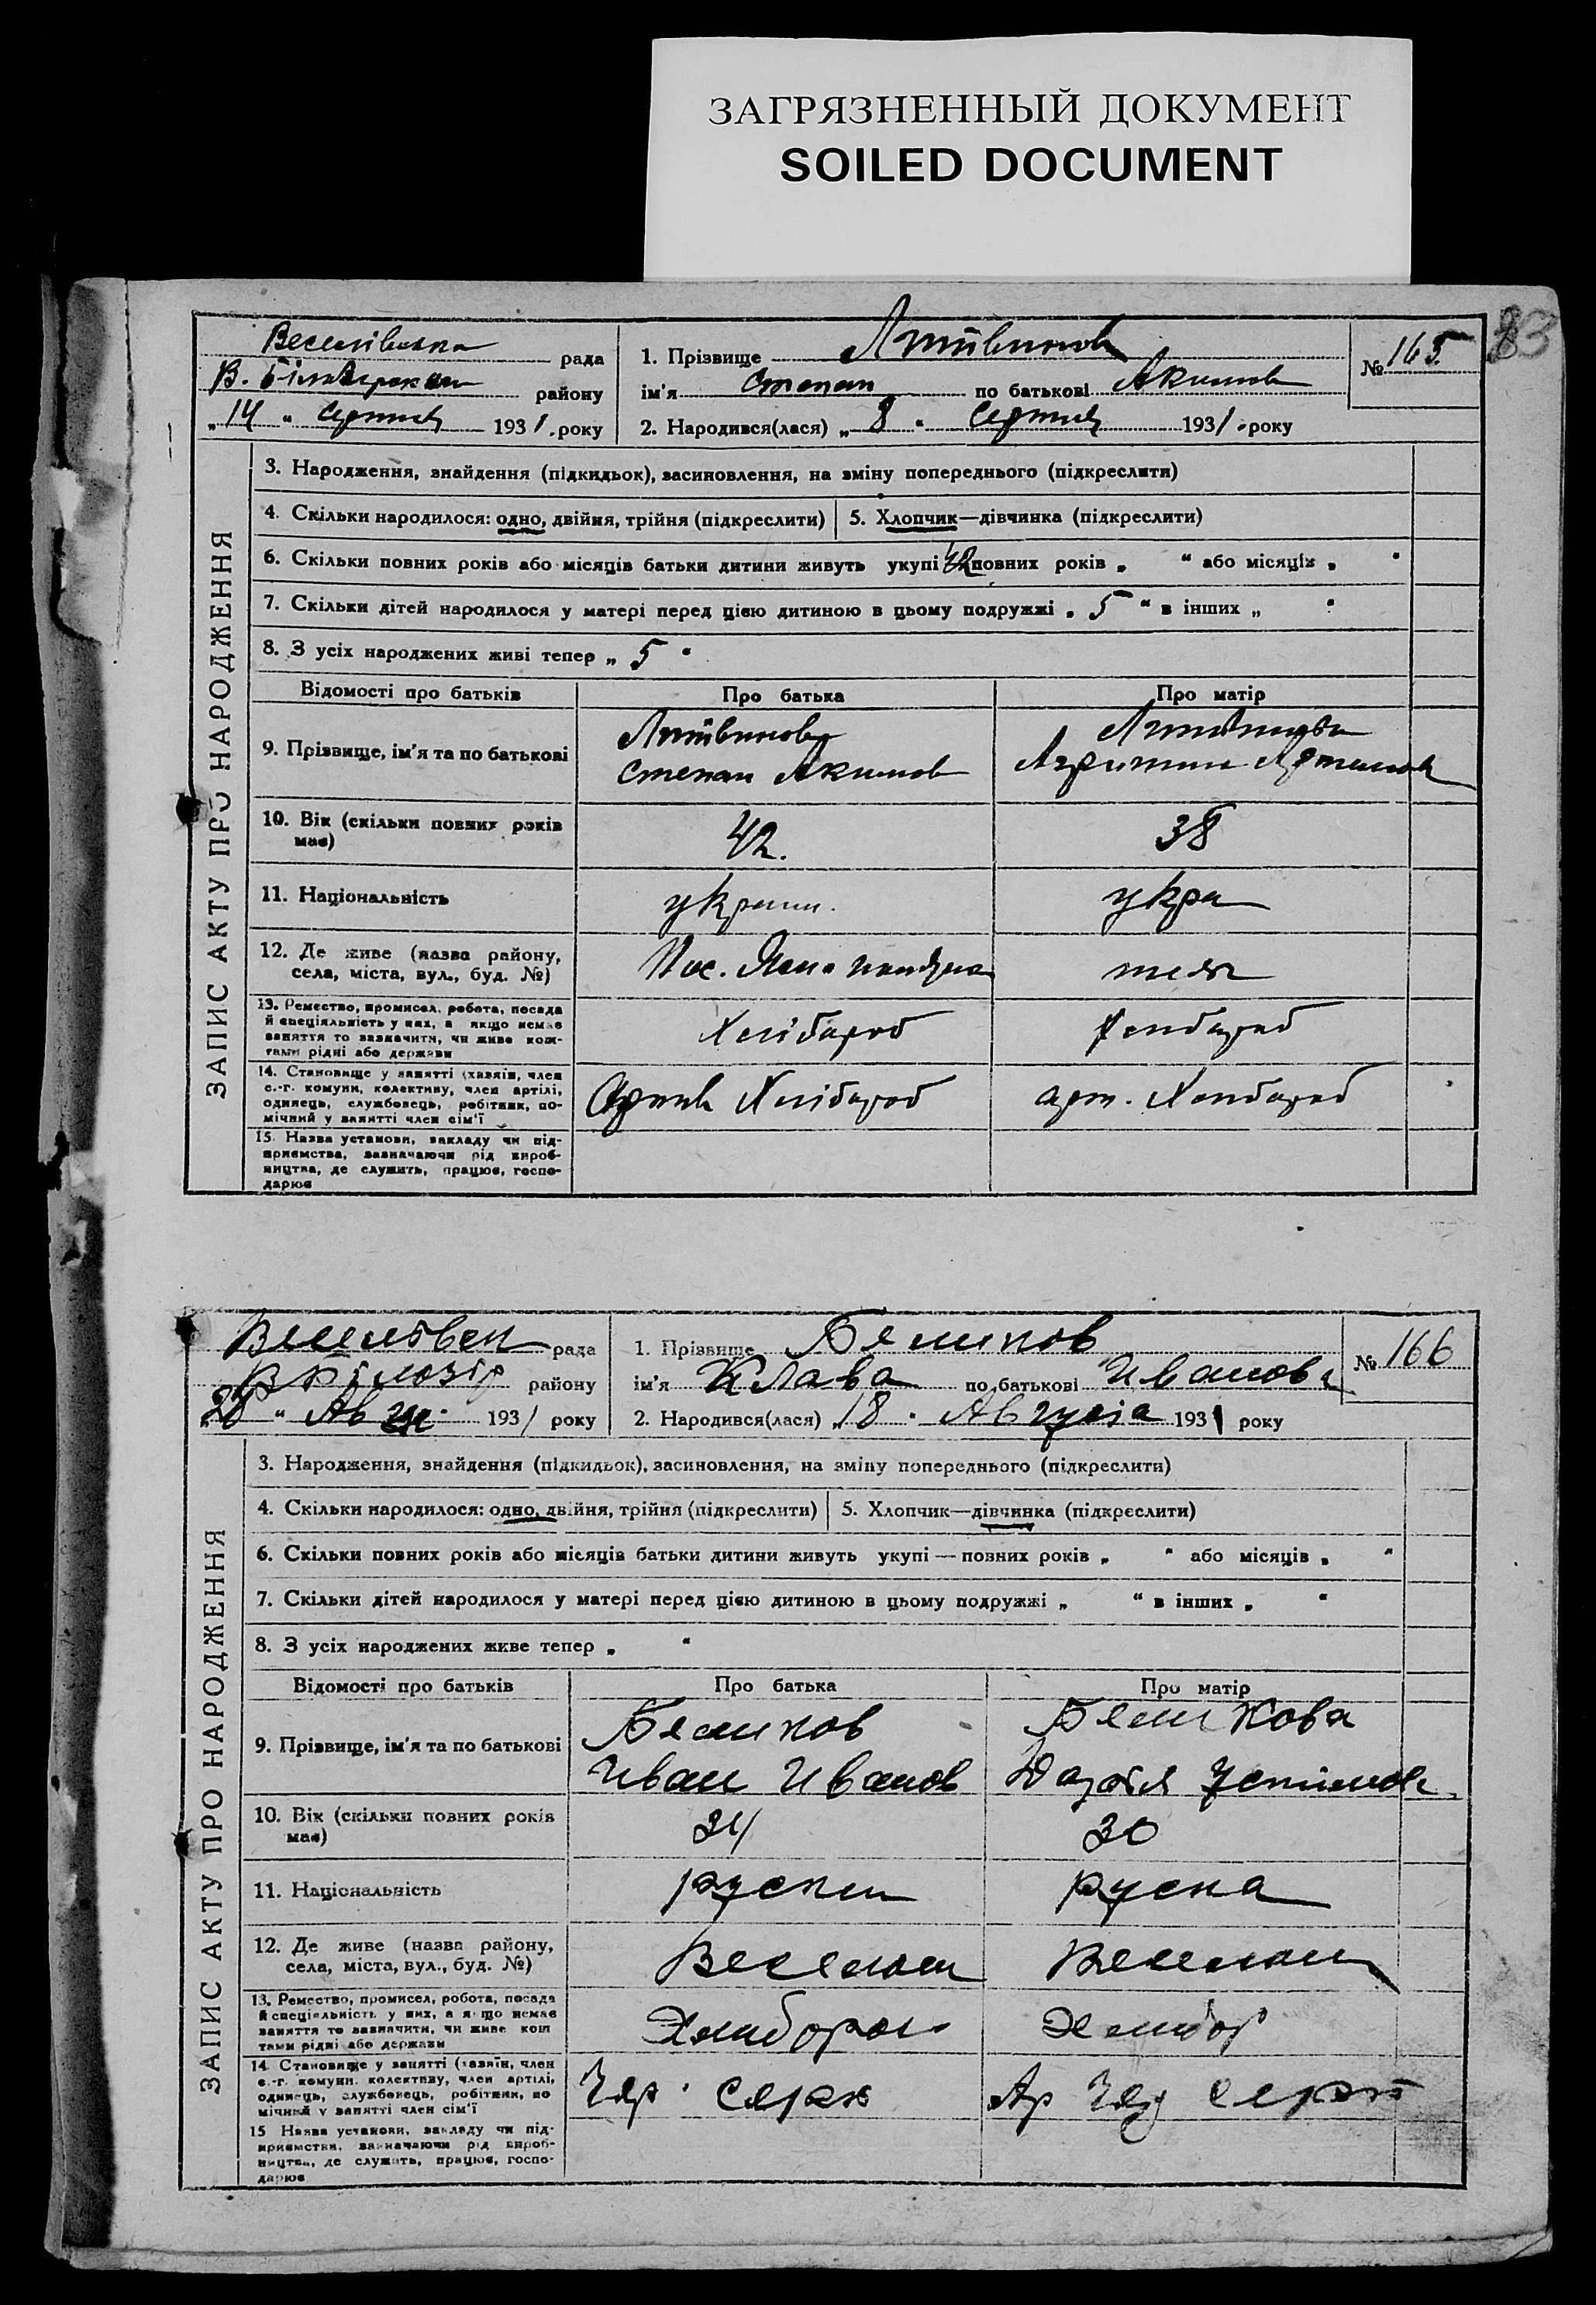 ЗАГРЯЗНЕННЫЙ ДОКУМЕНТ
SOILED DOCUMENT
83
рада
району
"14" серпня 1931 . року
1. Прізвище Литвинов
ім'я Степан по батькові Акимов
2. Народився(лася) „8" Серпня 1931 . року
№ 165
ЗАПИС АКТУ ПРО НАРОДЖЕННЯ
3. Народження, знайдення (підкидьок), засиновлення, на зміну попереднього (підкреслити)
4. Скільки народилося: одно, двійня, трійня (підкреслити)
5. Хлопчик—дівчинка (підкреслити)
6. Скільки повних років або місяців батьки дитини живуть укупі повних років „ " або місяців „ "
7. Скільки дітей народилося у матері перед цією дитиною в цьому подружжі „ 5 " в інших „ "
8. З усіх народжених живі тепер „ 5 "
Відомості про батьків
Про батька
Про матір
9. Прізвище, ім'я та по батькові
Литвинов
Степан Акимов
10. Вік (скільки повних років
має)
42.
38
11. Національність
україн.
укра
12. Де живе (назва району,
села, міста, вул., буд. №)
13. Ремество, промисел, робота, посада
й спеціяльність у них, а якщо немає
заняття то зазначити, чи живе кош-
тами рідні або держави
Хлібороб
Хлібороб
14. Становище у занятті (хазяїн, член
с.-г. комуни, колективу, член артілі,
одинець, службовець, робітник, по-
мічний у занятті член сім'ї
Хлібороб
арт. Хлібороб
15. Назва установи, закладу чи під-
приємства, зазначаючи рід вироб-
ництва, де служить, працює, госпо-
дарює
рада
району
28 " Авгу 1931 року
1. Прізвище Беликов
ім'я Клава по батькові Иванова
2. Народився(лася) „18 " Августа 1931 року
№ 166
ЗАПИС АКТУ ПРО НАРОДЖЕННЯ
3. Народження, знайдення (підкидьок), засиновлення, на зміну попереднього (підкреслити)
4. Скільки народилося: одно, двійня, трійня (підкреслити)
5. Хлопчик—дівчинка (підкреслити)
6. Скільки повних років або місяців батьки дитини живуть укупі — повних років „ " або місяців „ "
7. Скільки дітей народилося у матері перед цією дитиною в цьому подружжі „ " в інших „ "
8. З усіх народжених живе тепер „ "
Відомості про батьків
Про батька
Про матір
9. Прізвище, ім'я та по батькові
Беликов
Беликова
Иван Иванов
10. Вік (скільки повних років
має)
34
30
11. Національність
руска
12. Де живе (назва району,
села, міста, вул., буд. №)
13. Ремество, промисел, робота, посада
й спеціяльність у них, а якщо немає
заняття то зазначити, чи живе кош
тами рідні або держави
14. Становище у занятті (хазяїн, член
с.-г. комуни, колективу, член артілі,
одинець, службовець, робітник, по
мічний у занятті член сім'ї
15 Назва установи, закладу чи під-
приємства, зазначаючи рід вироб-
ництва, де служить, працює, госпо-
дарює